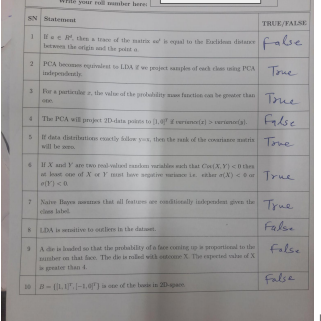 Write your roll number here:
SN Statement TRUE/FALSE
1 If a ∈ R^d, then a trace of the matrix aa^t is equal to the Euclidean distance False
between the origin and the point a.
2 PCA becomes equivalent to LDA if we project samples of each class using PCA True
independently.
3 For a particular x, the value of the probability mass function can be greater than True
one.
4 The PCA will project 2D-data points to [1,0]^T if variance(x) > variance(y). False
5 If data distributions exactly follow y=x, then the rank of the covariance matrix True
will be zero.
6 If X and Y are two real-valued random variables such that Cov(X,Y) < 0 then
at least one of X or Y must have negative variance i.e. either σ(X) < 0 or True
σ(Y) < 0
7 Naive Bayes assumes that all features are conditionally independent given the True
class label.
8 LDA is sensitive to outliers in the dataset. False
9 A die is loaded so that the probability of a face coming up is proportional to the False
number on that face. The die is rolled with outcome X. The expected value of X
is greater than 4.
10 B = {[1,1]^T, [-1,0]^T} is one of the basis in 2D-space. False